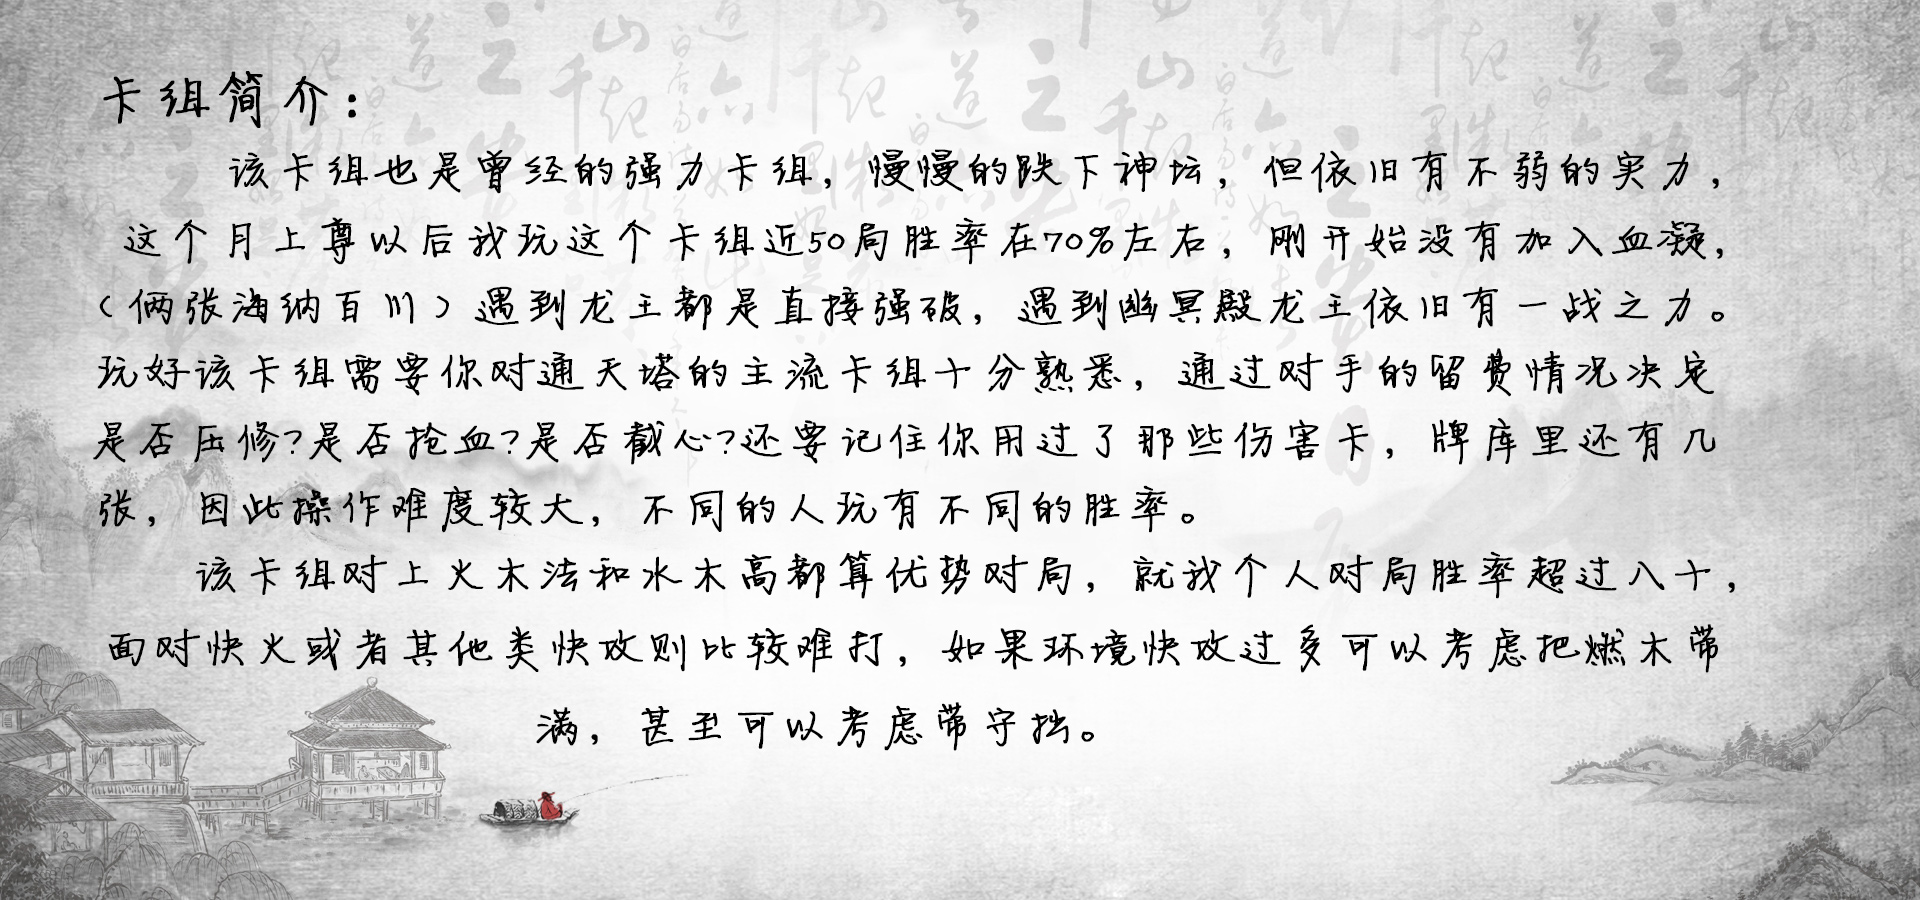 卡组简介：
该卡组也是曾经的强力卡组，慢慢的跌下神坛，但依旧有不弱的实力，
这个月上尊以后我玩这个卡组近50局胜率在70%左右，刚开始没有加入血凝，
（俩张海纳百川）遇到龙王都是直接强破，遇到幽冥殿龙王依旧有一战之力。
玩好该卡组需要你对通天塔的主流卡组十分熟悉，通过对手的留费情况决定
是否压修?是否抢血?是否截心?还要记住你用过了那些伤害卡，牌库里还有几
张，因此操作难度较大，不同的人玩有不同的胜率。
该卡组对上火木法和水木高都算优势对局，就我个人对局胜率超过八十，
面对快火或者其他类快攻则比较难打，如果环境快攻过多可以考虑把燃木带
满，甚至可以考虑带守拙。